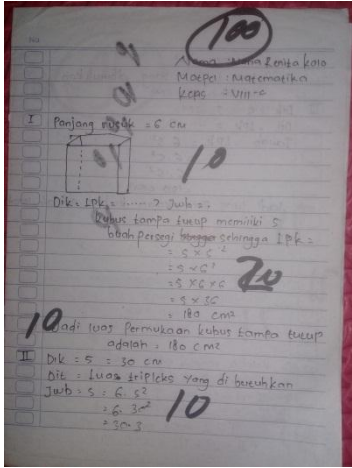 100
Nama : Maria Renita Koro
Matpel : Matematika
Kelas : VIII-C
I Panjang rusuk = 6 cm
10
Dik = LPk = ......? Jwb =.
Kubus tampa tutup memiliki 5
buah persegi sehingga LPk =
= 5 x 6²
= 5 x 6²
= 5 x 6 x 6
20
= 5 x 36
= 180 cm²
10
Jadi luas permukaan kubus tampa tutup
adalah = 180 cm²
II Dik = S = 30 cm
Dit = Luas tripleks yang di butuhkan
Jwb = S = 6. S²
= 6. 30²
10